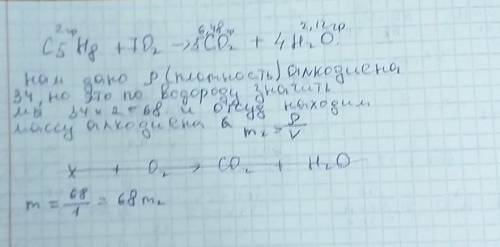 2 гр 6,48 гр 2,12 гр
C5H8 + 7O2 → 5CO2 + 4H2O
нам дано ρ (плотность) алкодиена
34, но это по водороду значить
мы 34 × 2 = 68 и отсуд находим
массу алкодиена m2 = ρ/V
x + O2 → CO2 + H2O
m = 68/1 = 68 m2